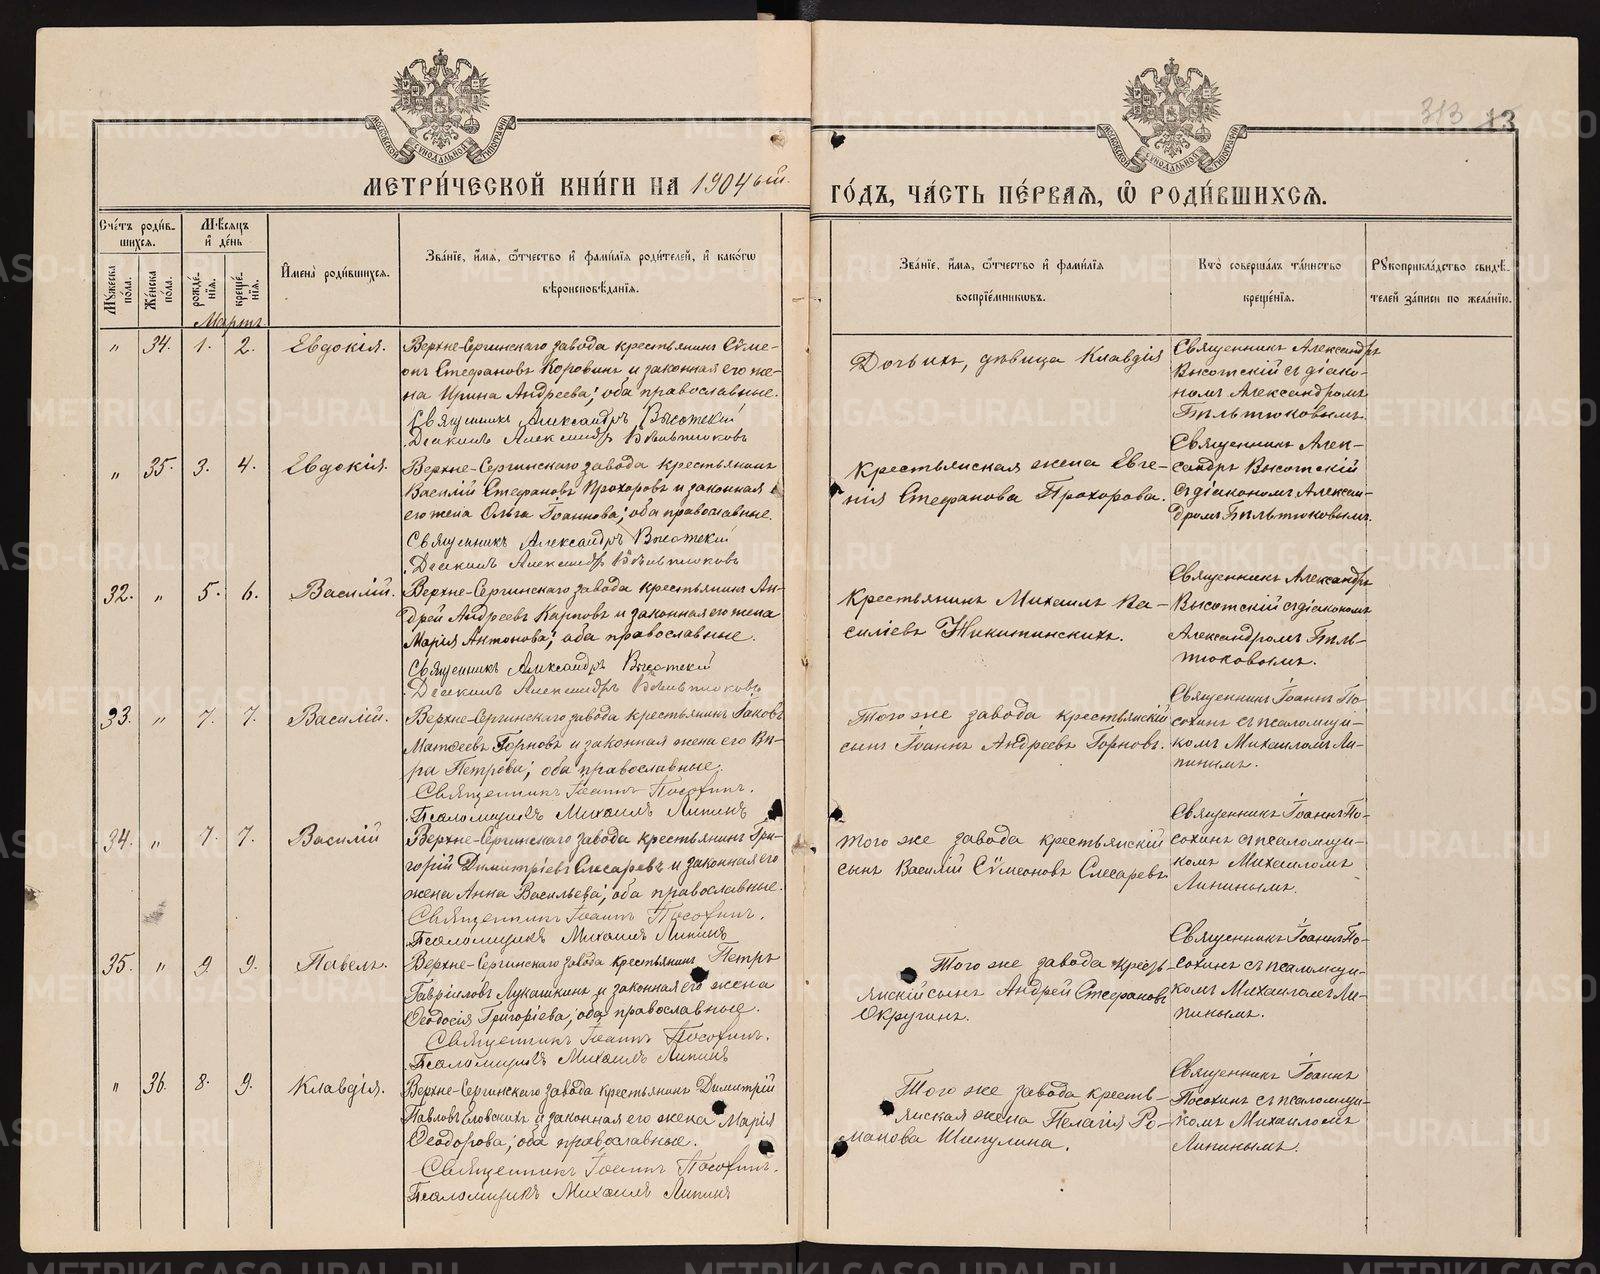 313 13
МОСКОВСКОЙ СѴНОДАЛЬНОЙ ТИПОГРАФІИ
МОСКОВСКОЙ СѴНОДАЛЬНОЙ ТИПОГРАФІИ
МЕТРИ́ЧЕСКОЙ КНИ́ГИ НА 1904ый.
ГО́ДЪ, ЧА́СТЬ ПЕ́РВАѦ, Ѽ РОДИ́ВШИХСѦ.
Сче́тъ роди́в-
шихсѧ.
Мѣ́сѧцъ
и҆ де́нь
Мꙋ́жеска по́ла.
Же́нска по́ла.
рожде́-
нїѧ.
креще́-
нїѧ.
И҆мена̀ роди́вшихсѧ.
Зва́нїе, и҆́мѧ, ѻ҆́тчество и҆ фами́лїѧ роди́телей, и҆ како́гѡ
вѣроисповѣ́данїѧ.
Зва́нїе, и҆́мѧ, ѻ҆́тчество и҆ фами́лїѧ
воспрїе́мникѡвъ.
Кто̀ соверша́лъ та́инство
креще́нїѧ.
Рꙋкоприкла́дство свидѣ́-
телей за́писи по жела́нїю.
Мартъ.
" 34. 1. 2. Евдокія.
Верхне-Сергинскаго завода крестьянинъ Сѵме-
онъ Стефановъ Коровинъ и законная его же-
на Ирина Андреева; оба православные.
Священникъ Александръ Высотскій
Діаконъ Александръ Бѣльтюковъ
Дочь ихъ, дѣвица Клавдія
Священникъ Александръ
Высотскій съ діако-
номъ Александромъ
Бѣльтюковымъ.
" 35. 3. 4. Евдокія.
Верхне-Сергинскаго завода крестьянинъ
Василій Стефановъ Прохоровъ и законная
его жена Ольга Іоаннова; оба православные.
Священникъ Александръ Высотскій
Діаконъ Александръ Бѣльтюковъ
Крестьянская жена Евге-
нія Стефанова Прохорова.
Священникъ Алек-
сандръ Высотскій
съ діакономъ Алексан-
дромъ Бѣльтюковымъ.
32. " 5. 6. Василій.
Верхне-Сергинскаго завода крестьянинъ Ан-
дрей Андреевъ Карповъ и законная его жена
Марія Антонова; оба православные.
Священникъ Александръ Высотскій
Діаконъ Александръ Бѣльтюковъ
Крестьянинъ Михаилъ Ва-
силіевъ Никитинскихъ.
Священникъ Александръ
Высотскій съ діакономъ
Александромъ Бѣль-
тюковымъ.
33. " 7. 7. Василій.
Верхне-Сергинскаго завода крестьянинъ Іаковъ
Матѳеевъ Горновъ и законная жена его Вѣ-
ра Петрова; оба православные.
Священникъ Іоаннъ Посохинъ.
Псаломщикъ Михаилъ Липинъ
Того же завода крестьянскій
сынъ Іоаннъ Андреевъ Горновъ.
Священникъ Іоаннъ По-
сохинъ съ псаломщи-
комъ Михаиломъ Ли-
пинымъ.
34. " 7. 7. Василій
Верхне-Сергинскаго завода крестьянинъ Гри-
горій Димитріевъ Слесаревъ и законная его
жена Анна Васильева; оба православные.
Священникъ Іоаннъ Посохинъ.
Псаломщикъ Михаилъ Липинъ
Того же завода крестьянскій
сынъ Василій Сѵмеоновъ Слесаревъ
Священникъ Іоаннъ По-
сохинъ съ псаломщи-
комъ Михаиломъ
Липинымъ.
35. " 9. 9. Павелъ.
Верхне-Сергинскаго завода крестьянинъ Петръ
Гавріиловъ Лукашкинъ и законная его жена
Ѳеодосія Григоріева; оба православные.
Священникъ Іоаннъ Посохинъ.
Псаломщикъ Михаилъ Липинъ
Того же завода кресть-
янскій сынъ Андрей Стефановъ
Округинъ.
Священникъ Іоаннъ По-
сохинъ съ псаломщи-
комъ Михаиломъ Ли-
пинымъ.
" 36. 8. 9. Клавдія.
Верхне-Сергинскаго завода крестьянинъ Димитрій
Павловъ Еловскихъ и законная его жена Марія
Ѳеодорова; оба православные.
Священникъ Іоаннъ Посохинъ.
Псаломщикъ Михаилъ Липинъ
Того же завода кресть-
янская жена Пелагія Ро-
манова Шипулина.
Священникъ Іоаннъ
Посохинъ съ псаломщи-
комъ Михаиломъ
Липинымъ.
METRIKI.GASO-URAL.RU